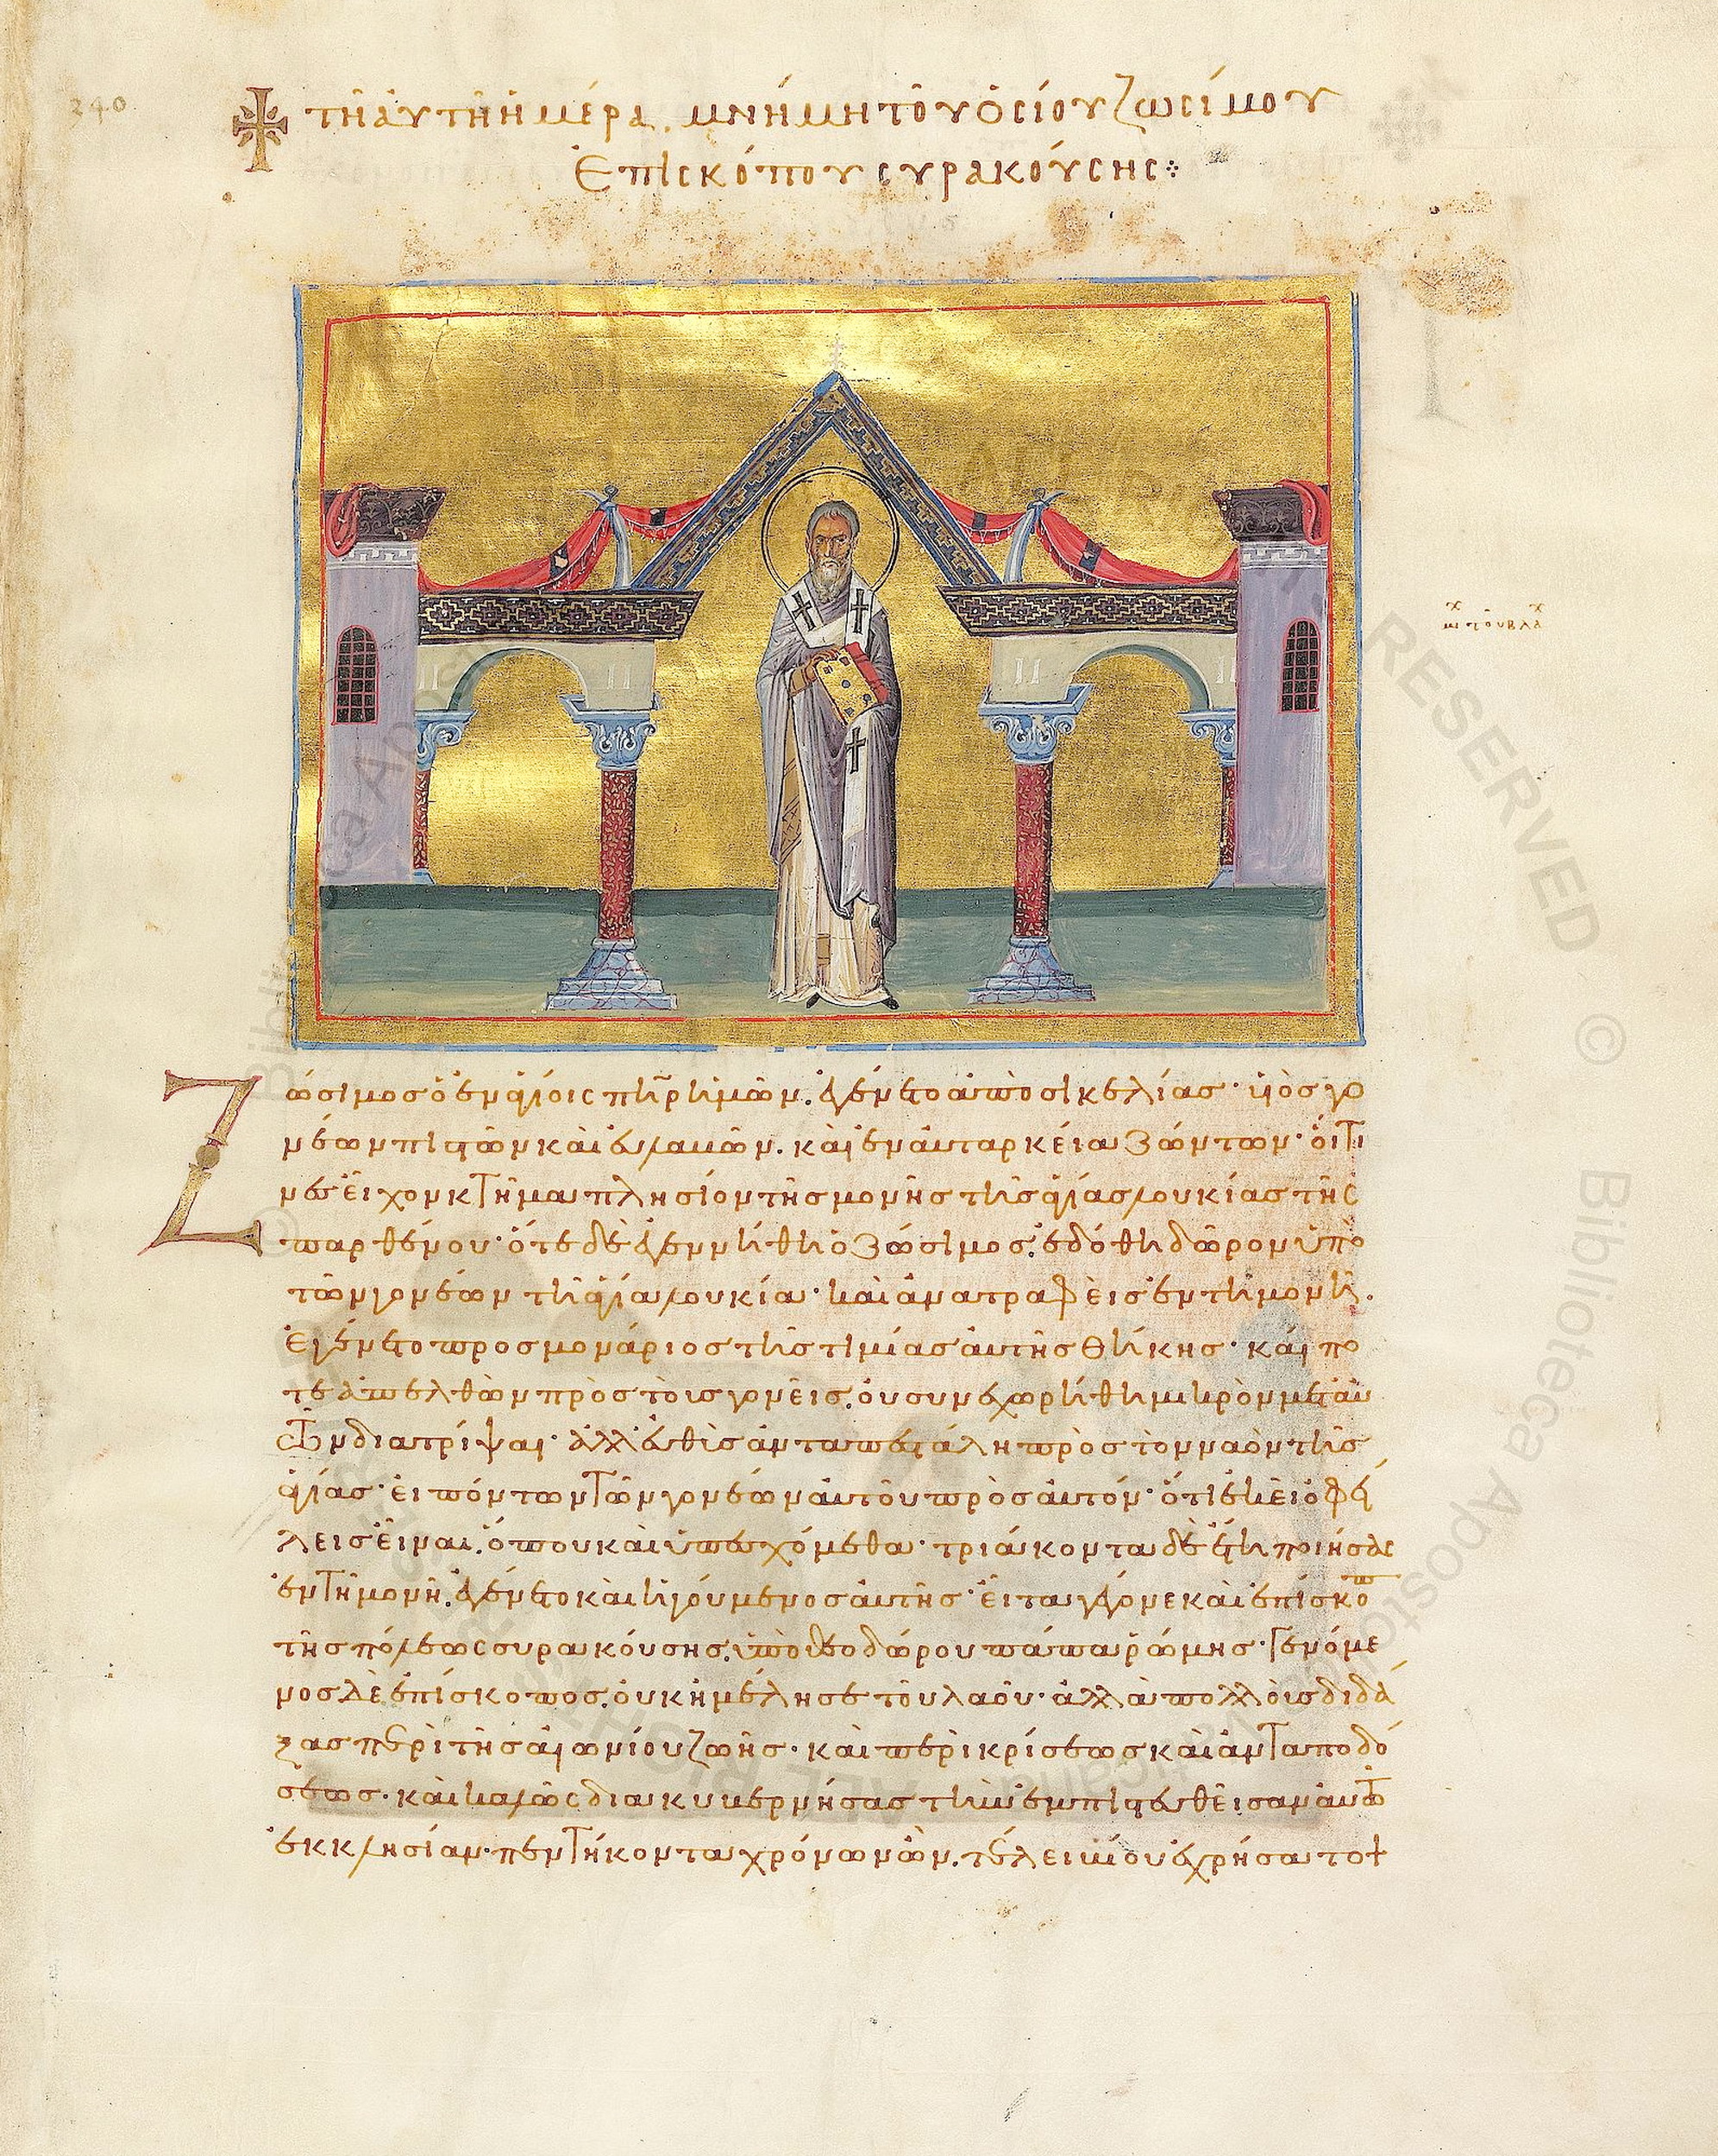 240
τῆ αὐτῆ ἡμέρα, μνήμη τοῦ ὁσίου ζωσίμου
Ἐπισκόπου συρακούσης
Ζώσιμος ὁ ἐν ἁγίοις πὴρ ἡμῶν, ἐγένετο ἀπὸ σικελίας· υἱὸς γο
νέων πιστῶν καὶ εὐλαβῶν, καὶ ἐν αὐταρκεία ζώντων· οἵτι
νες εἶχον κτῆμα πλησίον τῆς μονῆς τῆς ἁγίας λουκίας τῆς
παρθένου· ὅτε δὲ ἐγεννήθη ὁ ζώσιμος, ἐδόθη δῶρον ὑπὸ
τῶν γονέων τῆ ἁγία λουκία· καὶ ἀνατραφεὶς ἐν τῆ μονῆ,
ἐγένετο προσμονάριος τῆς τιμίας αὐτῆς θήκης· καί πο
τε ἀπελθὼν πρὸς τοὺς γονεῖς, οὐ συνεχωρήθη μικρὸν μετ αὐ
τῶν διατρίψαι· ἀλλ εὐθὺς ἀνταπεστάλη πρὸς τὸν ναὸν τῆς
ἁγίας· εἰπόντων τῶν γονέων αὐτοῦ πρὸς αὐτόν· ὅτι ἐκεῖ ὀφεί
λεις εἶναι, ὅπου καὶ ὑπεσχόμεθα· τριάκοντα δὲ ἔτη ποιήσας
ἐν τῆ μονῆ, ἐγένετο καὶ ἡγούμενος αὐτῆς· εἶτα γέγονε καὶ ἐπίσκοπ
τῆς πόλεως συρακούσης, ὑπὸ θεοδώρου πάπα ῥώμης· Γενόμε
νος δὲ ἐπίσκοπος, οὐκ ἠμέλησε τοῦ λαοῦ· ἀλλὰ πολλοὺς διδά
ξας περὶ τῆς αἰωνίου ζωῆς· καὶ περὶ κρίσεως καὶ ἀνταποδό
σεως· καὶ καλῶς διακυβερνήσας τὴν ἐμπιστευθεῖσαν αὐτῶ
ἐκκλησίαν· πεντήκοντα χρόνων ὢν, τέλει βίου ἐχρήσατο
μχ τοῦ βλαχ
© Biblioteca Apostolica Vaticana ALL RIGHTS RESERVED © Biblioteca Apostolica Vaticana ALL RIGHTS RESERVED